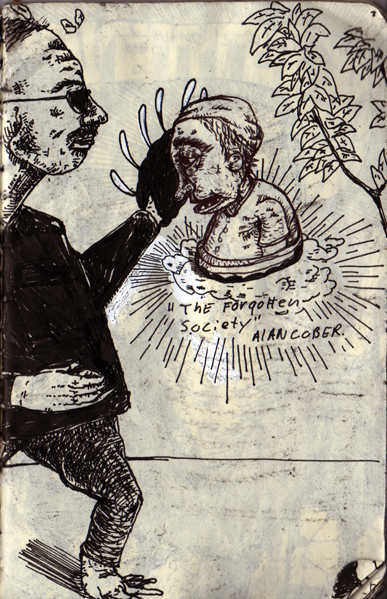 "THE FORGOTTEN
SOCIETY"
ALAN COBER.